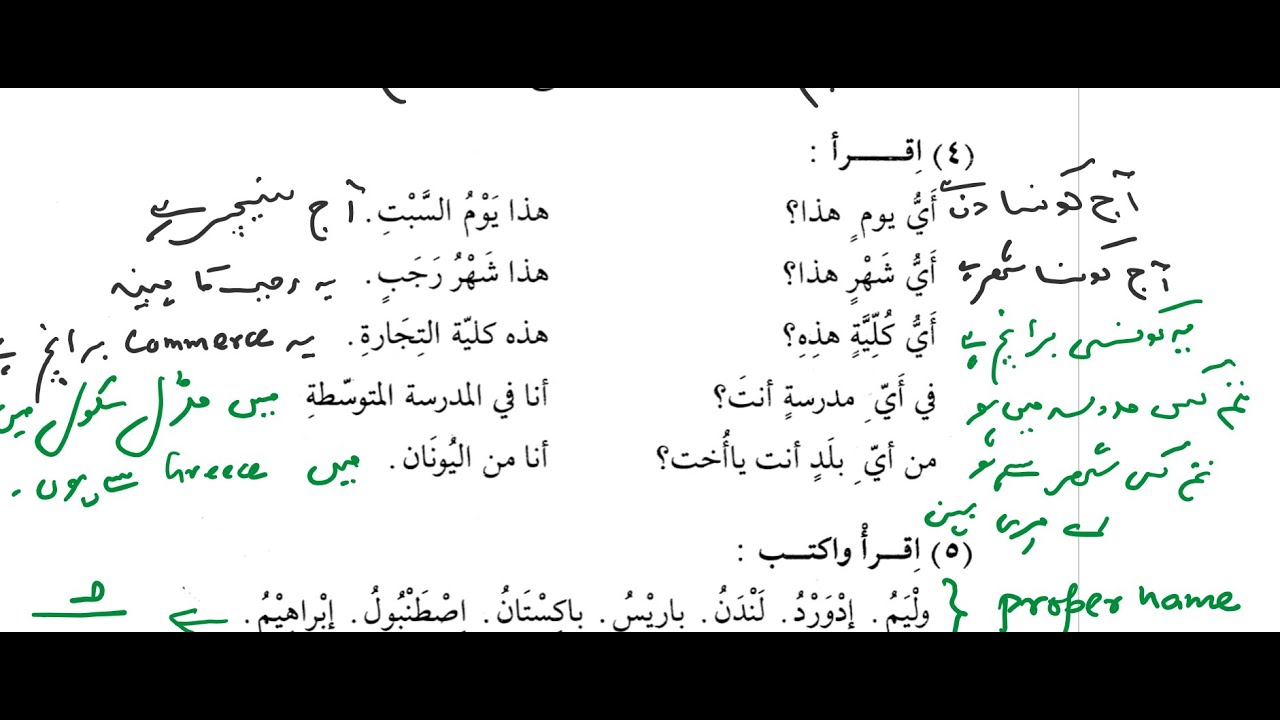 (٤) اِقـــــرأ :
آج کونسا دن ہے أَيُّ يومٍ هذا؟ هذا يَوْمُ السَّبْتِ. آج سنیچر ہے
آج کونسا شھر ہے أَيُّ شَهْرٍ هذا؟ هذا شَهْرُ رَجَبٍ. یہ رجب کا مہینہ
یہ کونسی برانچ ہے أَيُّ كُلِّيَّةٍ هذِهِ؟ هذه كليّة التِجَارةِ. یہ Commerce برانچ ہے
تم کس مدرسہ میں ہو في أَيِّ مدرسةٍ أنتَ؟ أنا في المدرسة المتوسّطةِ میں مڈل سکول میں
تم کس شھر سے ہو من أيِّ بلَدٍ أنت ياأُخت؟ أنا من اليُونَان. میں Greece سے ہوں.
اے میری بہن
(٥) اِقـرأْ واكتـــب :
proper name } وِلْيَمُ. إدْوَرْدُ. لَنْدَنُ. باريْسُ. باكِسْتَانُ. اِصْطَنْبُولُ. إبْراهِيْمُ. ←